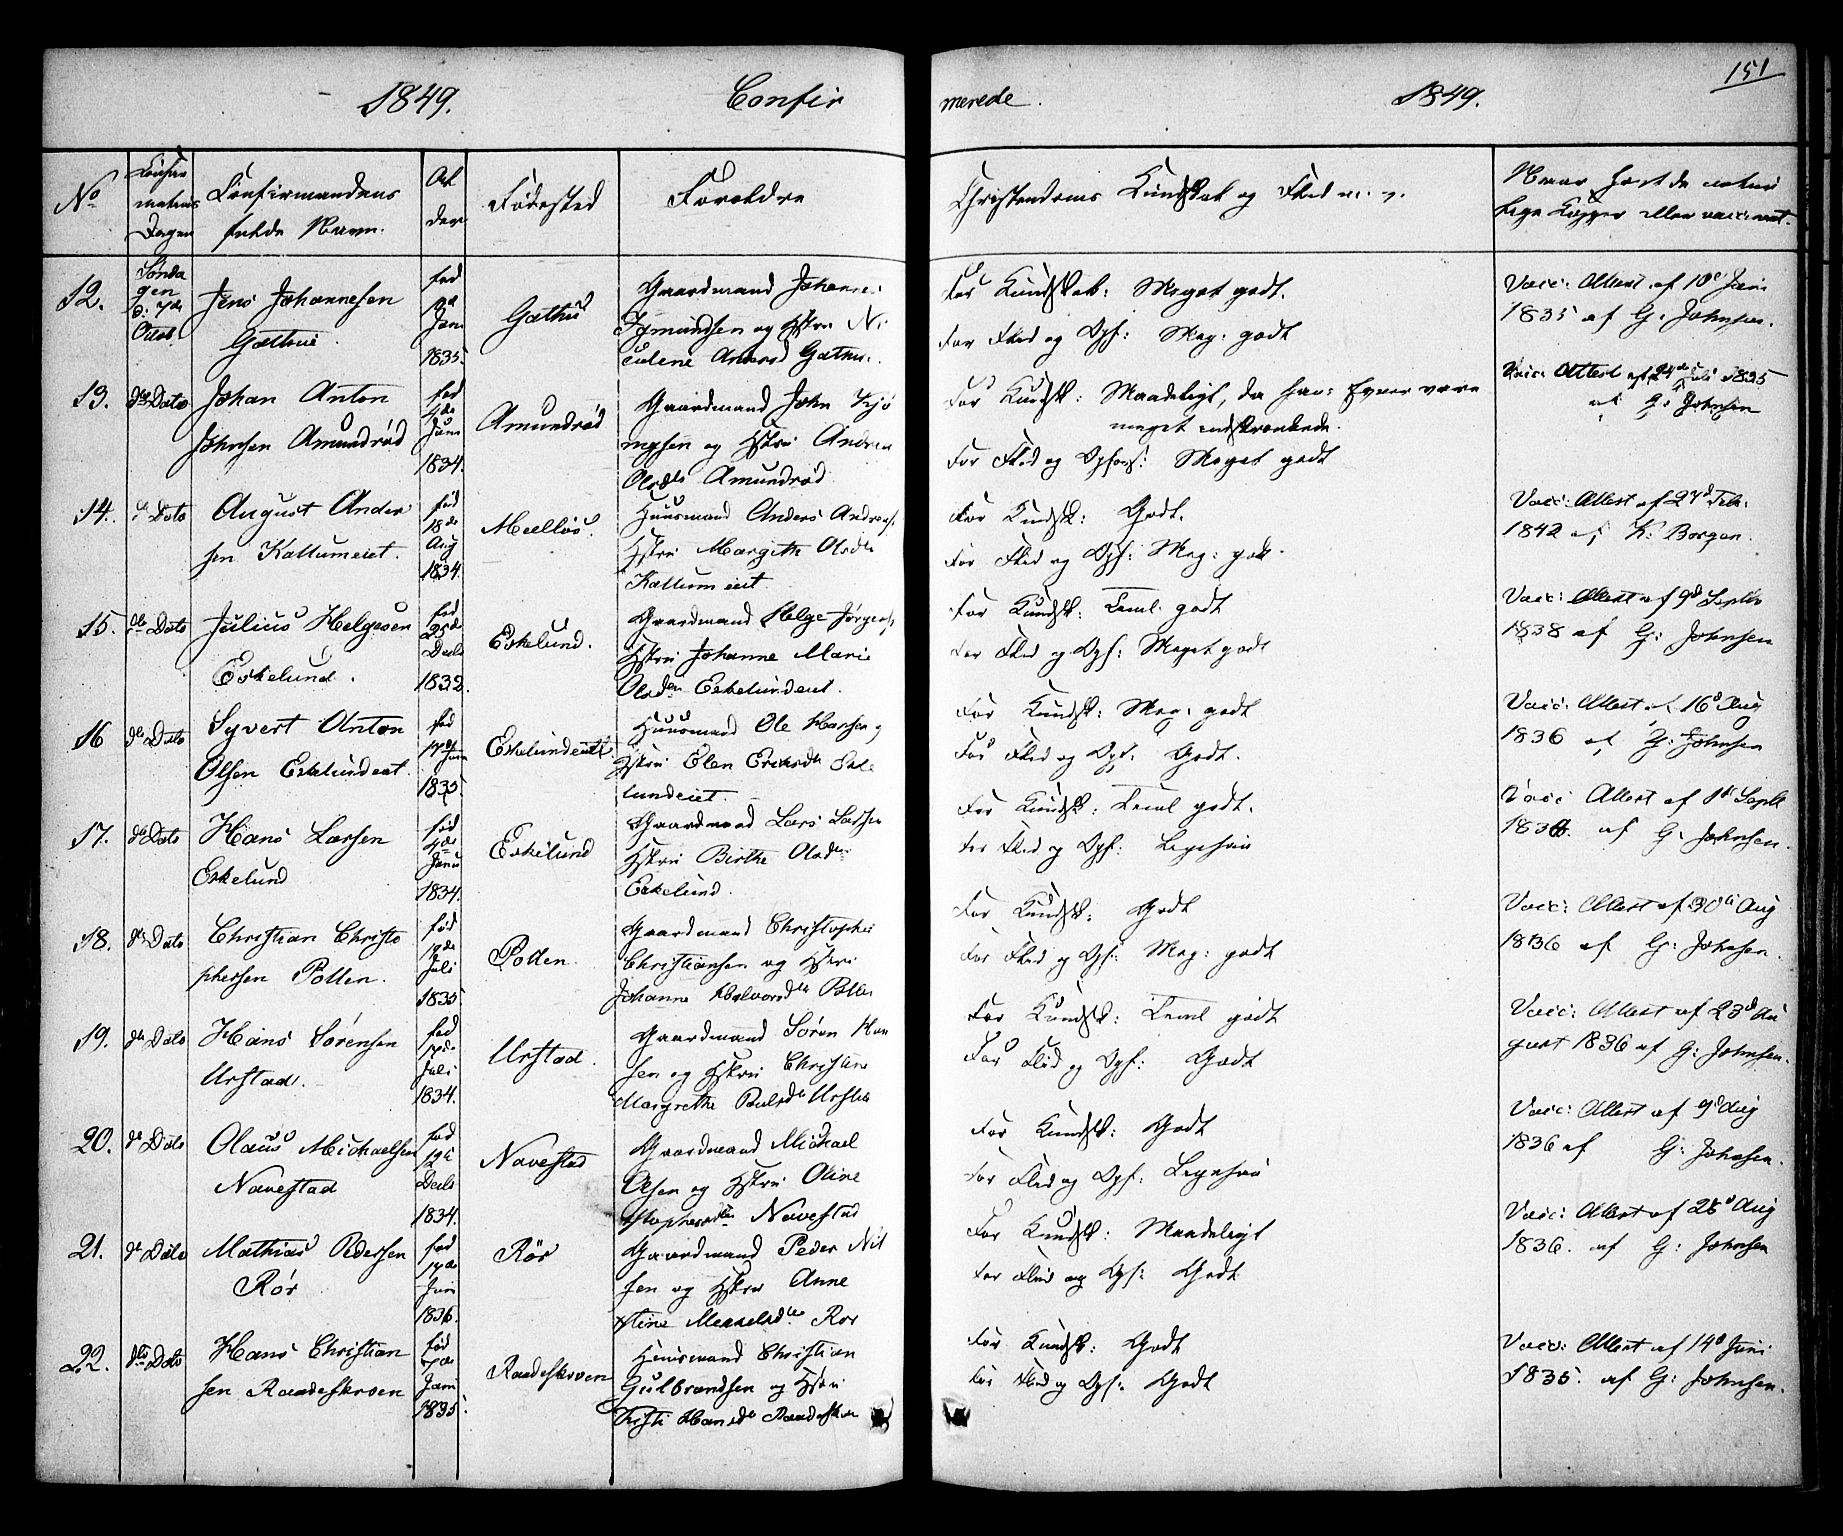 1849. Confir merede. 1849. 151
No
Confirmations Dagen
Confirmandens fulde Navn.
Alder
Fødested
Forældre
Christendoms Kundskab og Flid m. v.
Naar havt de naturlige Kopper eller vaccineret.
12.
Sønda
gen
d: 7de
Octob.
Jens Johannesen
Gathus.
fød
Jan
1835.
Gathus
Gaardmand Johannes
og Hstru
Gathus.
For Kundskab: Meget godt.
For Flid og Opf: Meg: godt
Vacc: Attest af 10de Juni
1835 af G. Johnsen.
13.
do Dato
Johan Anton
Johnsen Amundrød
fød
4de
Juni
1834.
Amundrød
Gaardmand John
og Hstru Andrea
Olsdtr Amundrød.
For Kundsk: Maadeligt, da hans Evner være
meget indskrænkede.
For Flid og Opførs: Meget godt
Vacc: Attest af 24de Juli 1835
af G: Johnsen
14.
do Dato
August Ander
sen Kallumeiet.
fød
18de
Aug
1834.
Huusmand Anders Anders.
Hstru Margithe Olsdtr
Kallumeiet
For Kundsk: Godt.
For Flid og Opf: Meg: godt.
Vacc: Attest af 27d Feb.
1842 af K: Borgen.
15.
do Dato
Julius Helgesen
Eskelund.
fød
25de
Decb
1832.
Eskelund.
Gaardmand Helge Jørgens.
Hstru Johanne Marie
Olsdtr Eskelundeiet.
For Kundsk: Teml. godt
For Flid og Opf: Meget godt
Vacc: Attest af 9d Septbr
1838 af G: Johnsen
16
do Dato
Syvert Anton
Olsen Eskelundeiet.
fød
17de
1835
Eskelundeiet
Huusmand Ole Hansen og
Hstru Elen Ericksdtr Eske
lundeiet.
For Kundsk: Meg: godt
For Flid og Opf: Godt.
Vacc: Attest af 16d Aug
1836 af G: Johnsen
17.
do Dato
Hans Larsen
Eskelund
fød
4de
Janu
1834.
Eskelund
Gaardmand Lars Larsen
Hstru Birthe Olsdtr
Eskelund.
For Kundsk: Teml godt.
For Flid og Opf: Ligesaa
Vacc: Attest af 1d Septb
1836. af G. Johnsen.
18.
do Dato
Christian Christo
phersen Pollen.
fød
Juli
1835
Pollen.
Gaardmand Christopher
Christiansen og Hstru
Johanne Halvorsdtr Pollen
For Kundsk: Godt
For Flid og Opf: Meg: godt
Vacc: Attest af 30te Aug
1836 af G: Johnsen.
19.
do Dato
Hans Sørensen
Urstad.
fød
17de
Juli
1834.
Urstad.
Gaardmand Søren Han
sen og Hstru Christine
Margrethe Poulsdtr Urstad
For Kundsk: Teml godt
For Flid og Opf: Godt
Vacc: Attest af 23d Au
gust 1836 af G: Johnsen.
20.
do Dato
Olaus Michaelsen
Navestad
fød
Decb
1834.
Navestad
Gaardmand Michael
Olsen og Hstru Oline
Navestad
For Kundsk: Godt
For Flid og Opf: Ligesaa
Vacc: Attest af 9d Aug
1836 af G: Johnsen.
21.
do Dato
Mathias Pedersen
Rør
fød
17de
Juni
1836.
Rør
Gaardmand Peder Nil
sen og Hstru Anne
Stine Rør
For Kundsk: Maadeligt
For Flid og Opf: Godt
Vacc: Attest af 28d Aug
1836. af G: Johnsen
22.
do Dato
Hans Christian
sen Raadeskroen
fød
1835.
Raadeskroen
Huusmand Christian
Gulbrandsen og Hstru
Kisti Hansdtr Raadeskroen
For Kundsk: Godt
For Flid og Opf: Godt
Vacc: Attest af 14d Juni
1835. af G: Johnsen.